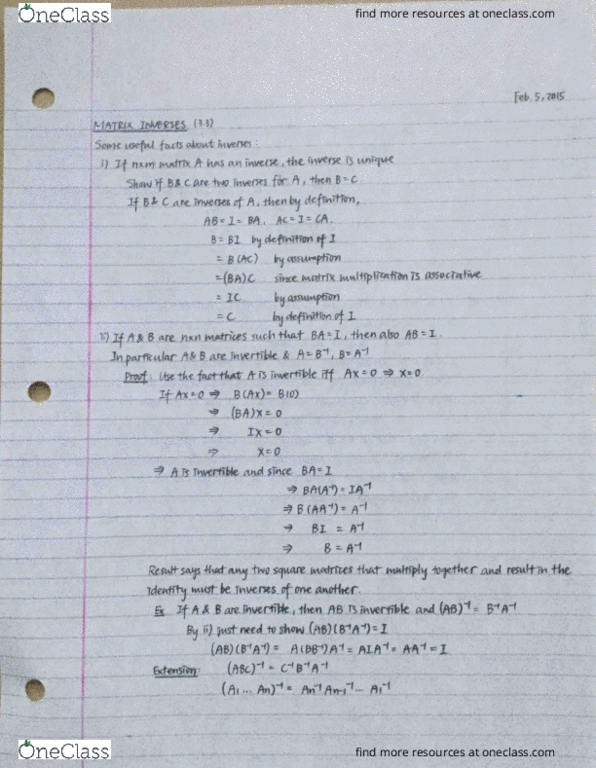 OneClass
find more resources at oneclass.com
Feb. 5, 2015
MATRIX INVERSES (3.3)
Some useful facts about inverses:
i) If nxm matrix A has an inverse, the inverse is unique
Show if B & C are two inverses for A, then B=C
If B & C are inverses of A, then by definition,
AB = I = BA, AC = I = CA.
B = BI by definition of I
= B(AC) by assumption
=(BA)C since matrix multiplication is associative
= IC by assumption
= C by definition of I
ii) If A & B are nxn matrices such that BA=I, then also AB=I.
In particular A & B are invertible & A=B⁻¹, B=A⁻¹
Proof: Use the fact that A is invertible iff Ax=0 ⇒ x=0
If Ax=0 ⇒ B(Ax)= B(0)
⇒ (BA)x = 0
⇒ Ix = 0
⇒ x=0
⇒ A is invertible and since BA=I
⇒ BA(A⁻¹)= IA⁻¹
⇒ B(AA⁻¹)= A⁻¹
⇒ BI = A⁻¹
⇒ B = A⁻¹
Result says that any two square matrices that multiply together and result in the
identity must be inverses of one another.
Ex If A & B are invertible, then AB is invertible and (AB)⁻¹= B⁻¹A⁻¹
By ii) just need to show (AB)(B⁻¹A⁻¹)=I
(AB)(B⁻¹A⁻¹)= A(BB⁻¹)A⁻¹= AIA⁻¹= AA⁻¹=I
Extension: (ABC)⁻¹= C⁻¹B⁻¹A⁻¹
(A₁ ... An)⁻¹= An⁻¹An-1⁻¹... A₁⁻¹
OneClass
find more resources at oneclass.com